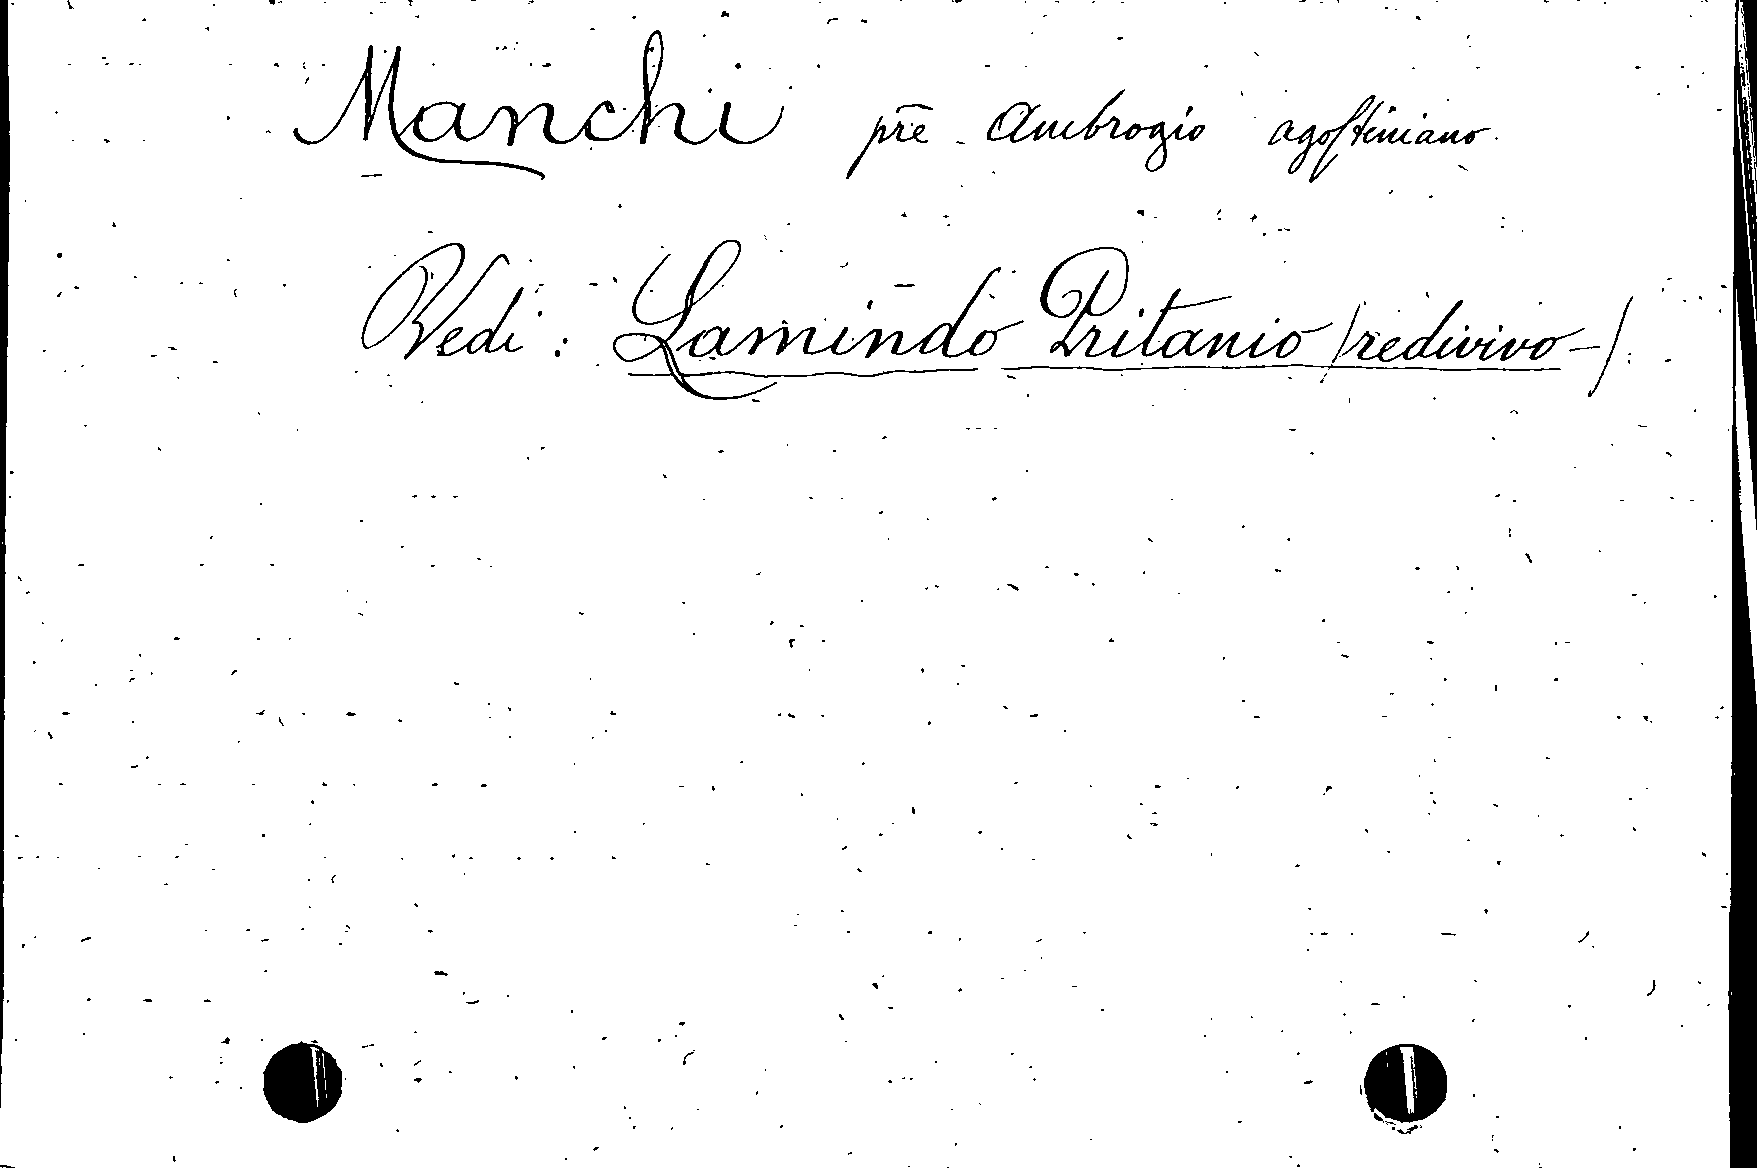 Manchi prē Ambrogio agostiniano
Vedi: Lamindo Pritanio /redivivo-/